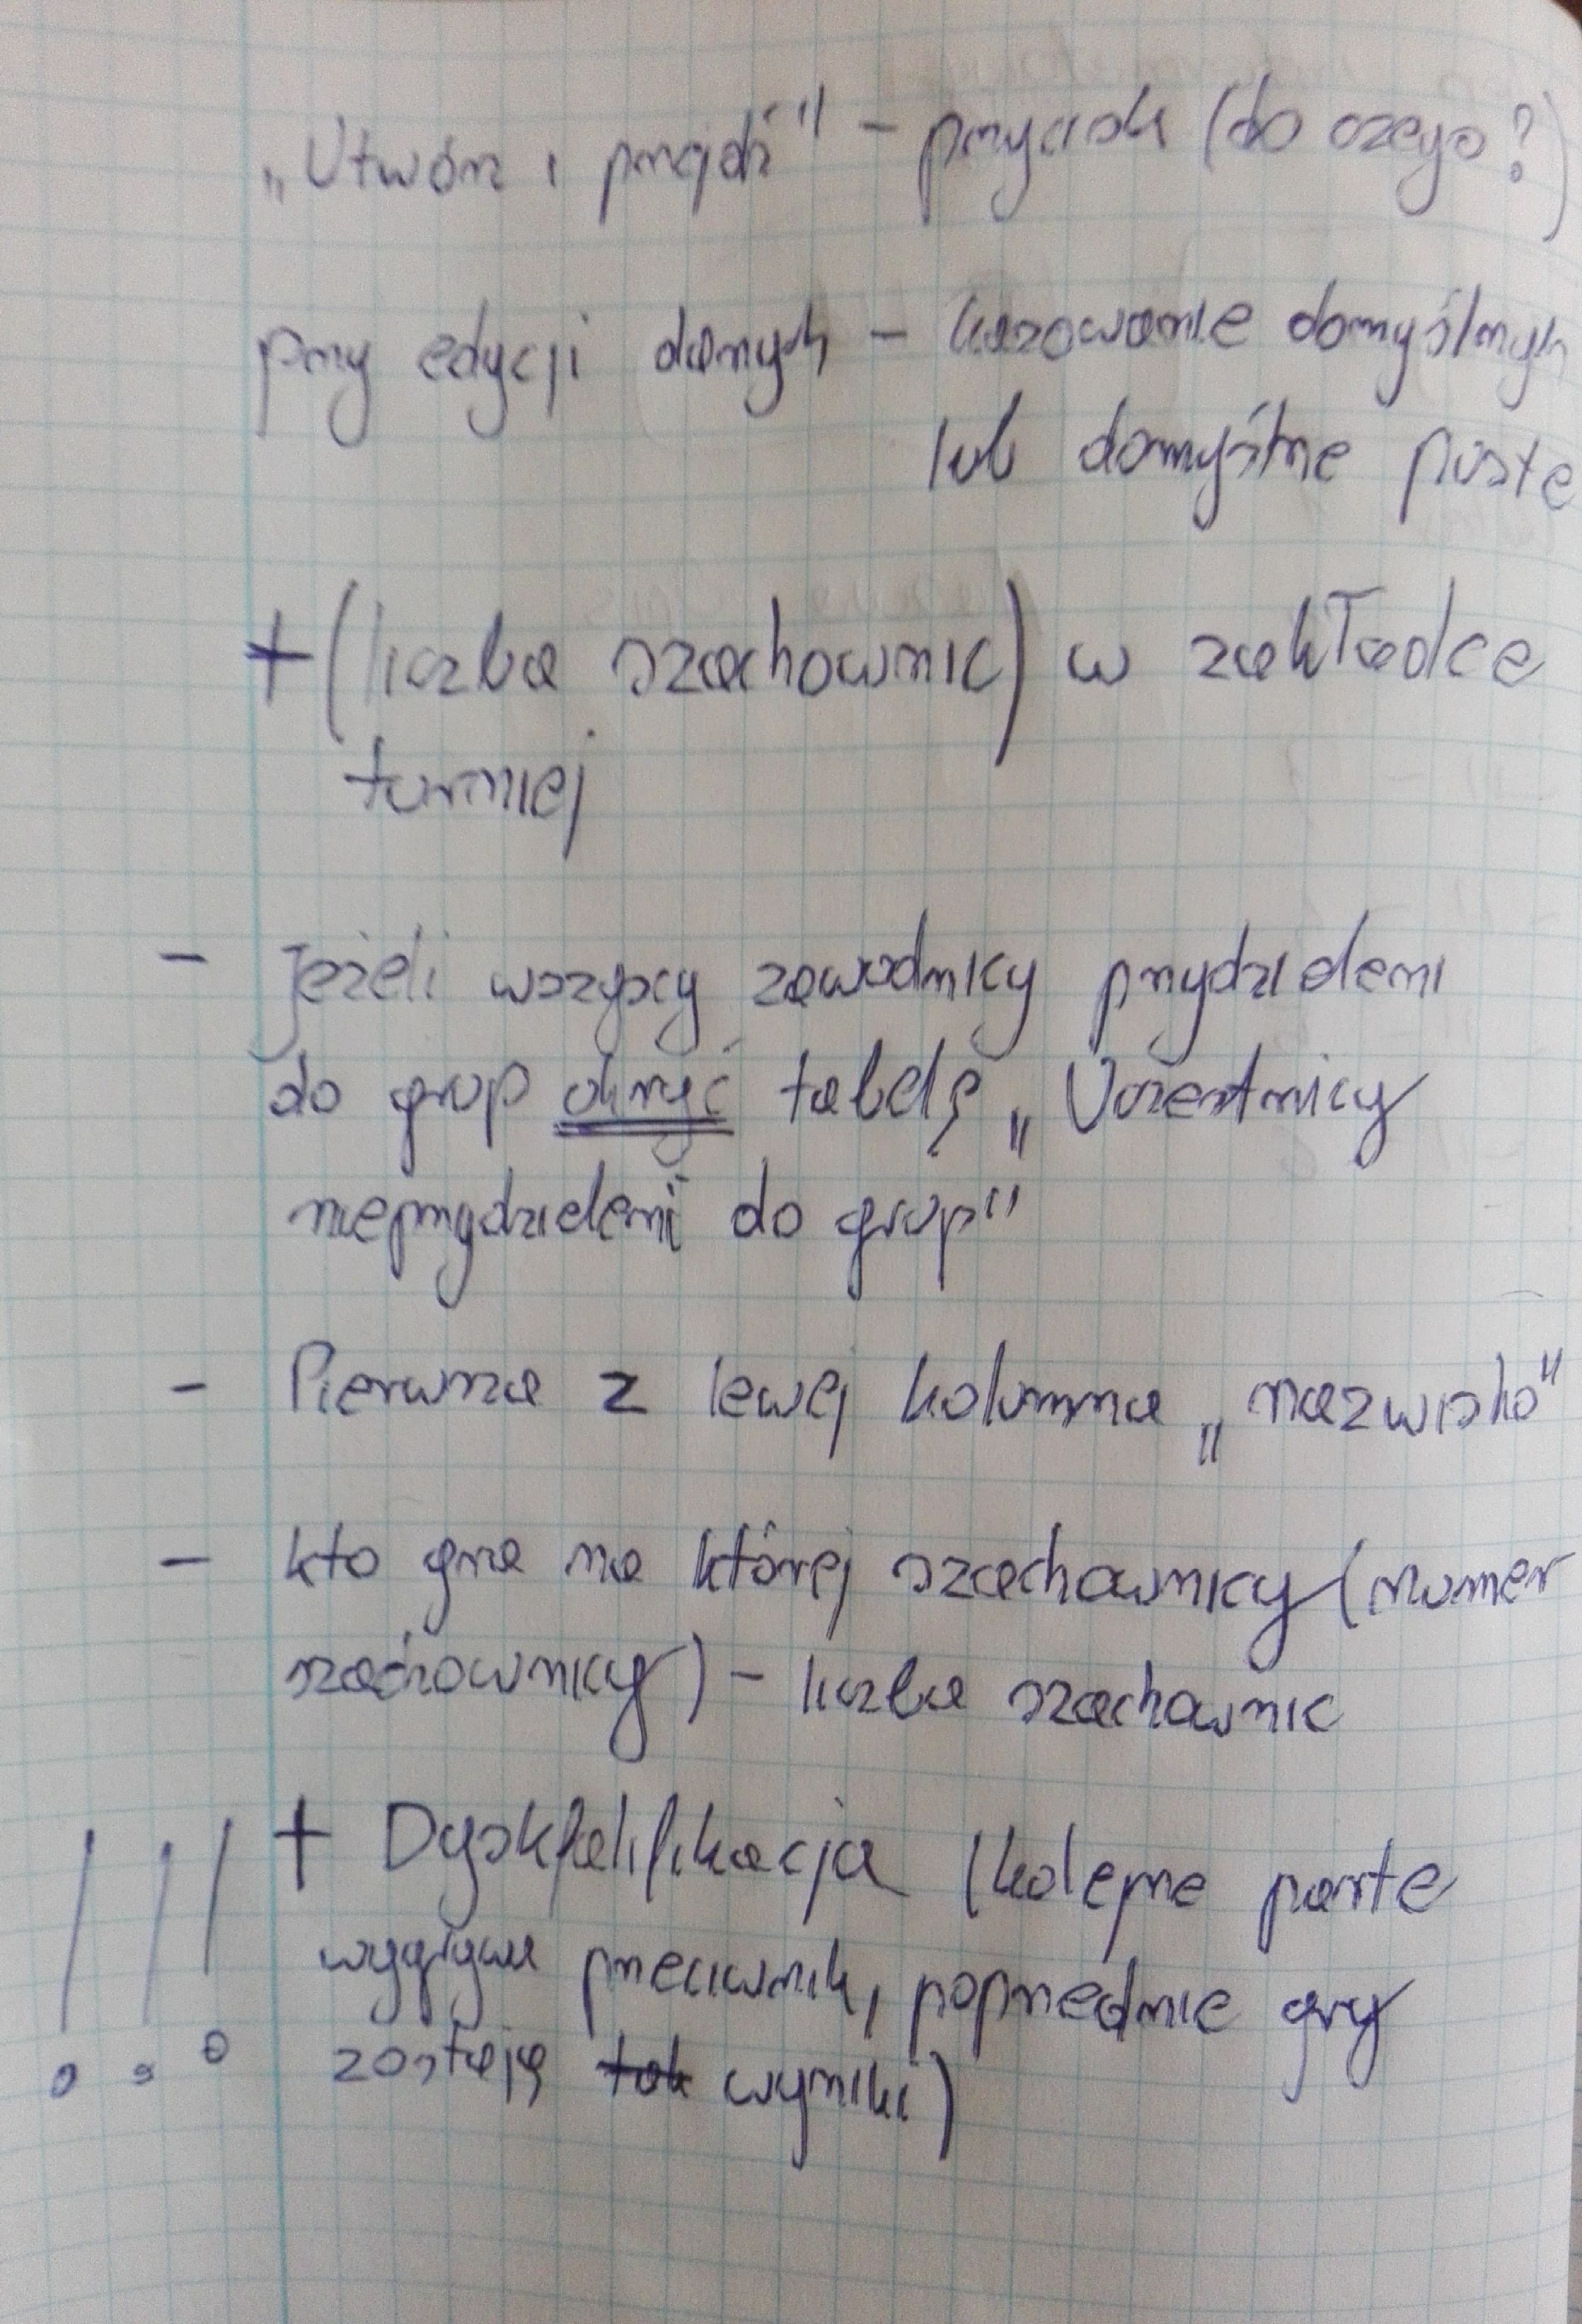 „Utwórz i przejdź" – przycisk (do czego?)
przy edycji danych – kasowanie domyślnych
lub domyślne puste
+ (liczba szachownic) w zakładce
turniej
– jeżeli wszyscy zawodnicy przydzieleni
do grup ukryć tabelę „Uczestnicy
nieprzydzieleni do grup"
– Pierwsza z lewej kolumna „nazwisko"
– kto gra na której szachownicy (numer
szachownicy) – liczba szachownic
!!! + Dyskfalifikacja (kolejne partie
wygrywa przeciwnik, poprzednie gry
zostają tak wyniki)